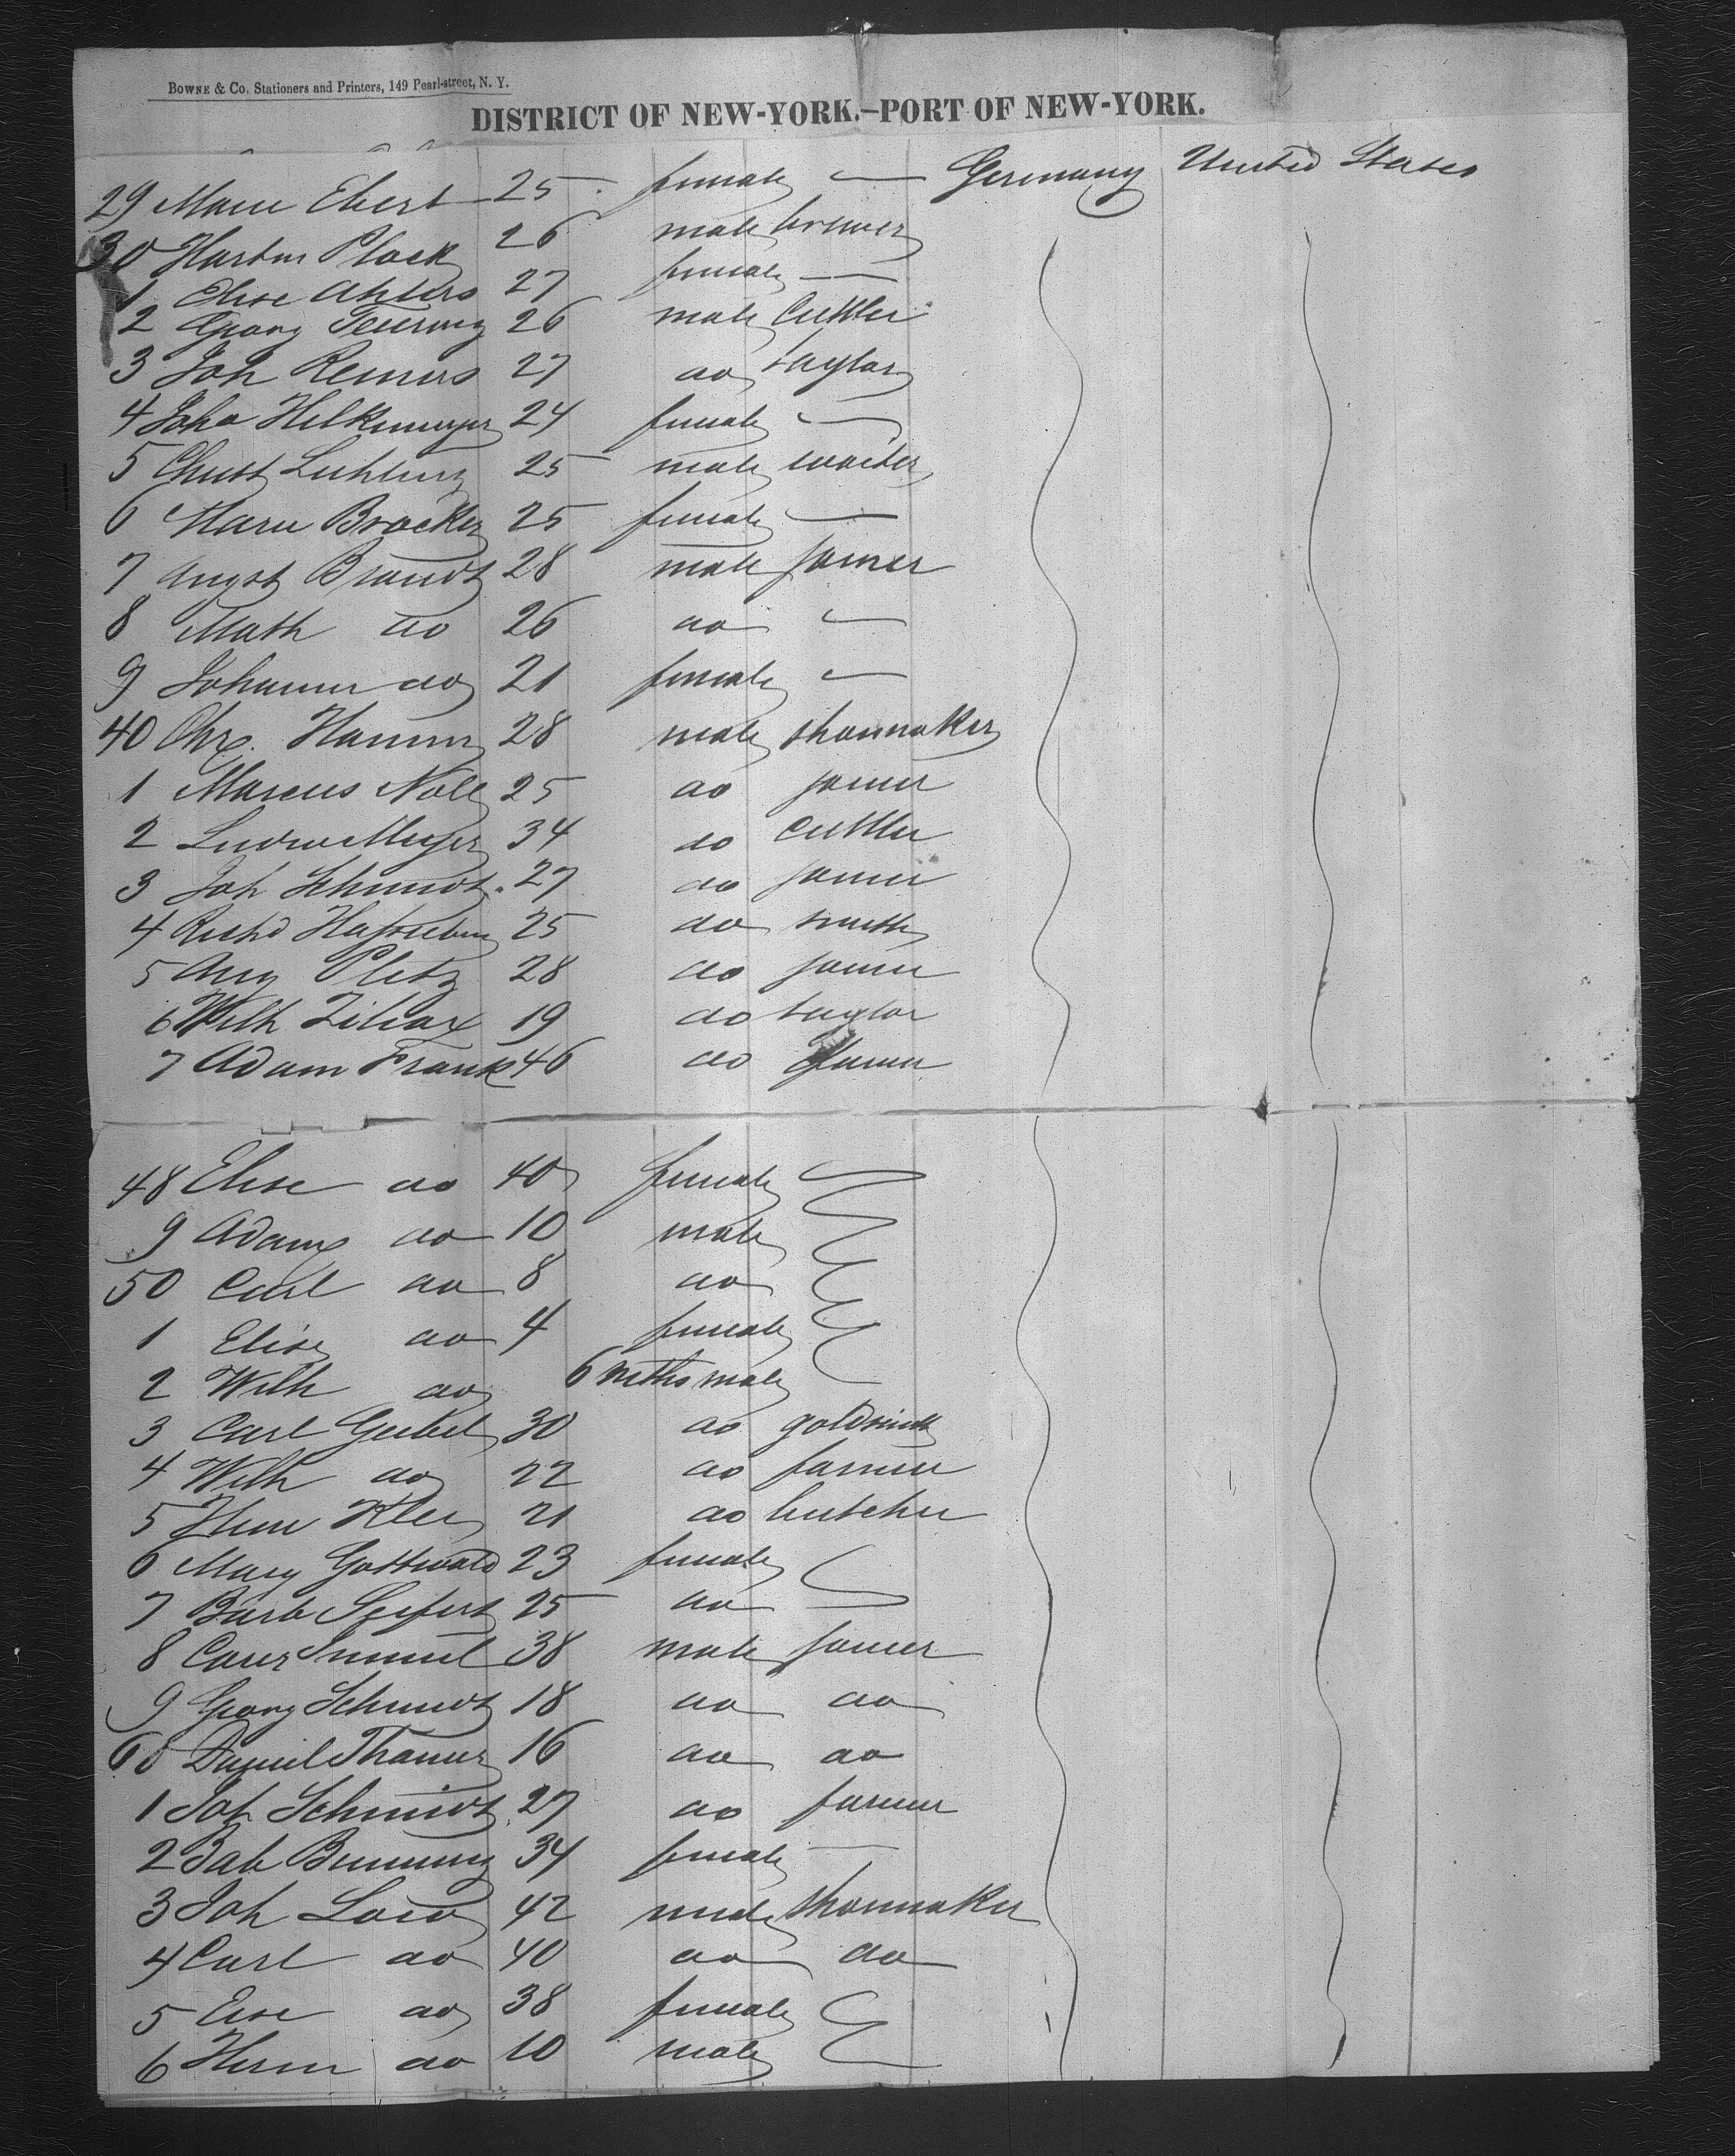 BOWNE & Co. Stationers and Printers, 149 Pearl-street, N. Y.
DISTRICT OF NEW-YORK.–PORT OF NEW-YORK.
29 Marie Ebert 25 female — Germany United States
30 Plock 26 male brewer
1 Elise Ahlers 27 female —
2 Georg 26 male Cuttler
3 Joh Reiners 27 do taylor
4 Joha Helkmeyer 24 female —
5 Christ 25 male waiter
6 Marie Brocker 25 female —
7 August Brandt 28 male joiner
8 Math do 26 do —
9 Johanne do 21 female —
40 Chr. Hamm 28 male shoemaker
1 Marcus Noll 25 do joiner
2 Ludw Meyer 34 do Cuttler
3 Joh Schmidt 27 do joiner
4 Richd 25 do smith
5 Aug Pletz 28 do joiner
6 Wilh Ziliax 19 do taylor
7 Adam Frank 46 do farmer
48 Elise do 40 female
9 Adam do 10 male
50 Carl do 8 do
1 Elise do 4 female
2 Wilh do 6 mths male
3 Carl Geibel 30 do goldsmith
4 Wilh do 22 do farmer
5 Klee 21 do butcher
6 Mary Gottwald 23 female
7 Barb Seifert 25 do
8 38 male joiner
9 Georg Schmidt 18 do do
60 Daniel Thamer 16 do do
1 Joh Schmidt 27 do farmer
2 Bab 34 female —
3 Joh 42 male shoemaker
4 Carl do 40 do do
5 Elise do 38 female
6 Herm do 10 male